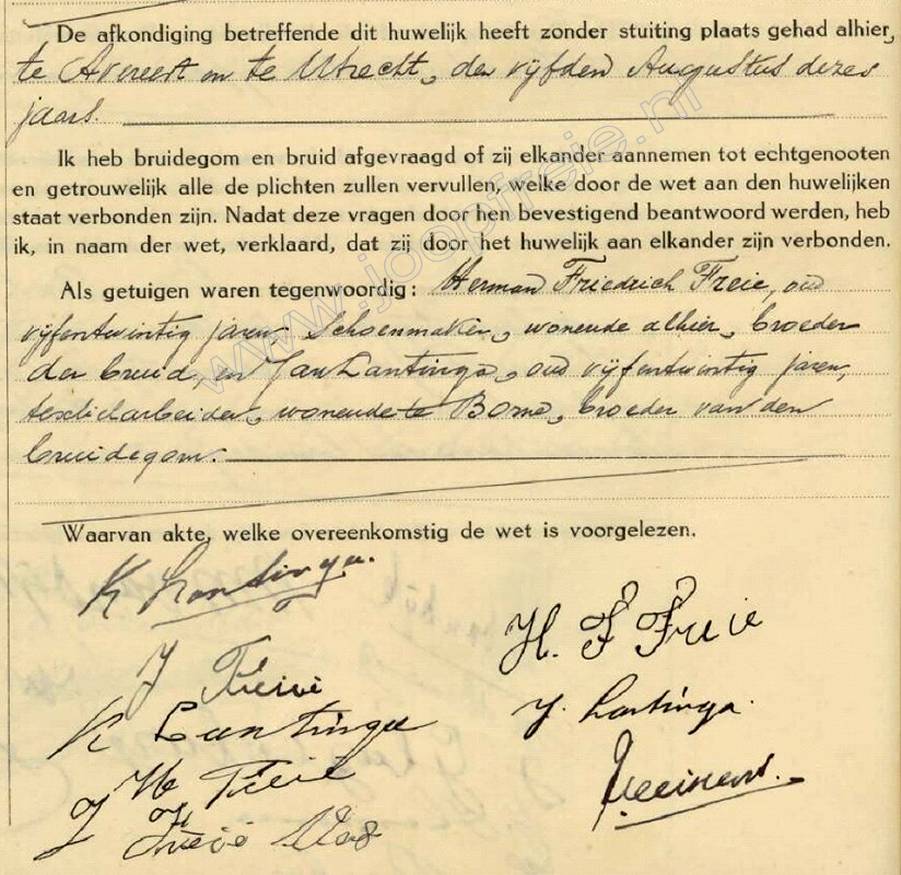 De afkondiging betreffende dit huwelijk heeft zonder stuiting plaats gehad alhier,
te Avereest en te Utrecht, den vijfden Augustus dezes
jaars.
Ik heb bruidegom en bruid afgevraagd of zij elkander aannemen tot echtgenooten
en getrouwelijk alle de plichten zullen vervullen, welke door de wet aan den huwelijken
staat verbonden zijn. Nadat deze vragen door hen bevestigend beantwoord werden, heb
ik, in naam der wet, verklaard, dat zij door het huwelijk aan elkander zijn verbonden.
Als getuigen waren tegenwoordig: Herman Friedrich Freie, oud
vijfentwintig jaren, Schoenmaker, wonende alhier, broeder
der bruid, en Jan Lantinga, oud vijfentwintig jaren,
textielarbeider, wonende te Borne, broeder van den
bruidegom.
Waarvan akte, welke overeenkomstig de wet is voorgelezen.
K Lantinga.
J Freie
K Lantinga
J H Freie
J Freie Vos
H. F Freie
J. Lantinga.
www.joopfreie.nl